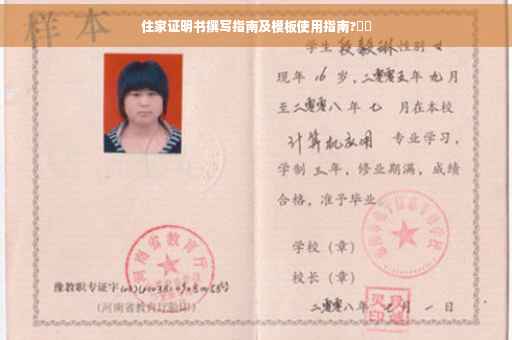 住家证明书撰写指南及模板使用指南?
样本
学生段毅琳性别女
现年16岁，二零零五年九月
至二零零八年七月在本校
计算机应用 专业学习，
学制三年，修业期满，成绩
合格，准予毕业
学校（章）
校长（章）
二零零八年七月一日
河南省教育厅
豫教职专证字
（河南省教育厅验印）